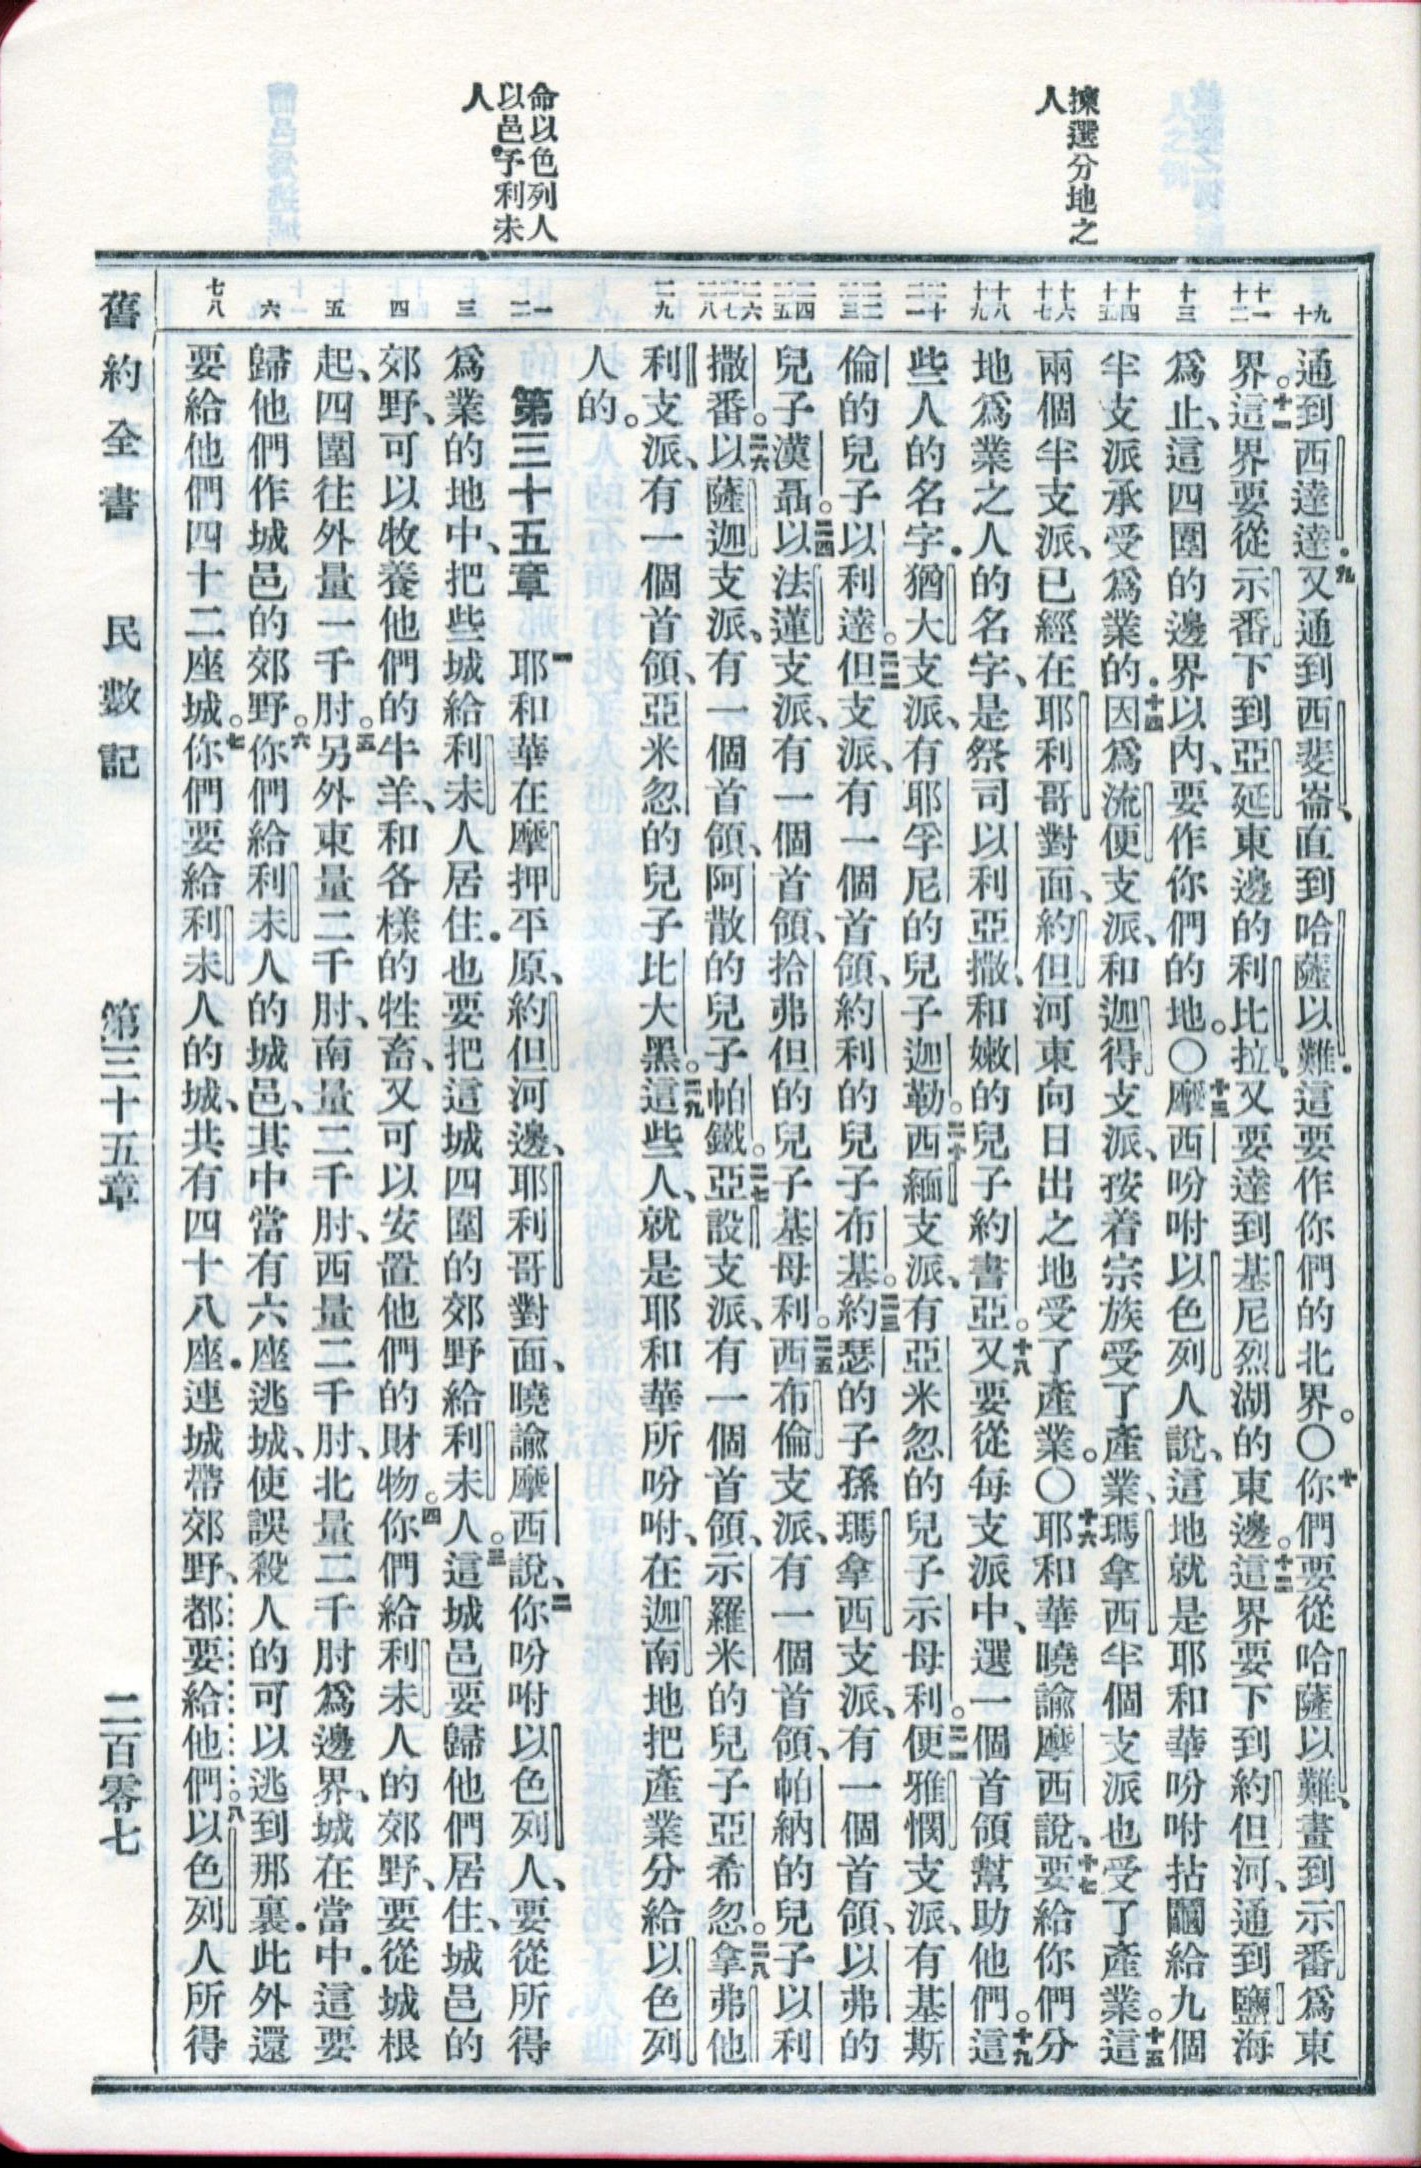 揀選分地之
人
命以色列人
以邑予利未
人
九十
十一十二
十三
十四十五
十六十七
十八十九
二十二一
二二二三
二四二五
二六二七二八
二九
一二
三
四
五
六
七八
通到西達達.九又通到西斐崙、直到哈薩以難.這要作你們的北界。〇十你們要從哈薩以難、畫到示番爲東
界。十一這界要從示番下到亞延東邊的利比拉、又要達到基尼烈湖的東邊。十二這界要下到約但河、通到鹽海
爲止、這四圍的邊界以内、要作你們的地。〇十三摩西吩咐以色列人說、這地就是耶和華吩咐拈鬮給九個
半支派承受爲業的.十四因爲流便支派、和迦得支派、按着宗族受了產業、瑪拿西半個支派也受了產業。十五這
兩個半支派、已經在耶利哥對面、約但河東向日出之地受了產業。〇十六耶和華曉諭摩西說、十七要給你們分
地爲業之人的名字、是祭司以利亞撒、和嫩的兒子約書亞。十八又要從每支派中、選一個首領幫助他們。十九這
些人的名字.猶大支派、有耶孚尼的兒子迦勒。二十西緬支派、有亞米忽的兒子示母利。二一便雅憫支派、有基斯
倫的兒子以利達。二二但支派、有一個首領、約利的兒子布基。二三約瑟的子孫瑪拿西支派、有一個首領、以弗的
兒子漢聶。二四以法蓮支派、有一個首領、拾弗但的兒子基母利。二五西布倫支派、有一個首領、帕納的兒子以利
撒番。二六以薩迦支派、有一個首領、阿散的兒子帕鐵。二七亞設支派、有一個首領、示羅米的兒子亞希忽。二八拿弗他
利支派、有一個首領、亞米忽的兒子比大黑。二九這些人、就是耶和華所吩咐、在迦南地把產業分給以色列
人的。
第三十五章　一耶和華在摩押平原、約但河邊、耶利哥對面、曉諭摩西說、二你吩咐以色列人、要從所得
爲業的地中、把些城給利未人居住.也要把這城四圍的郊野給利未人。三這城邑要歸他們居住、城邑的
郊野、可以牧養他們的牛羊、和各樣的牲畜、又可以安置他們的財物。四你們給利未人的郊野、要從城根
起、四圍往外量一千肘。五另外東量二千肘、南量二千肘、西量二千肘、北量二千肘爲邊界、城在當中.這要
歸他們作城邑的郊野。六你們給利未人的城邑、其中當有六座逃城、使誤殺人的可以逃到那裏.此外還
要給他們四十二座城。七你們要給利未人的城、共有四十八座.連城帶郊野、都要給他們。八以色列人所得
舊約全書　民數記　第三十五章　二百零七